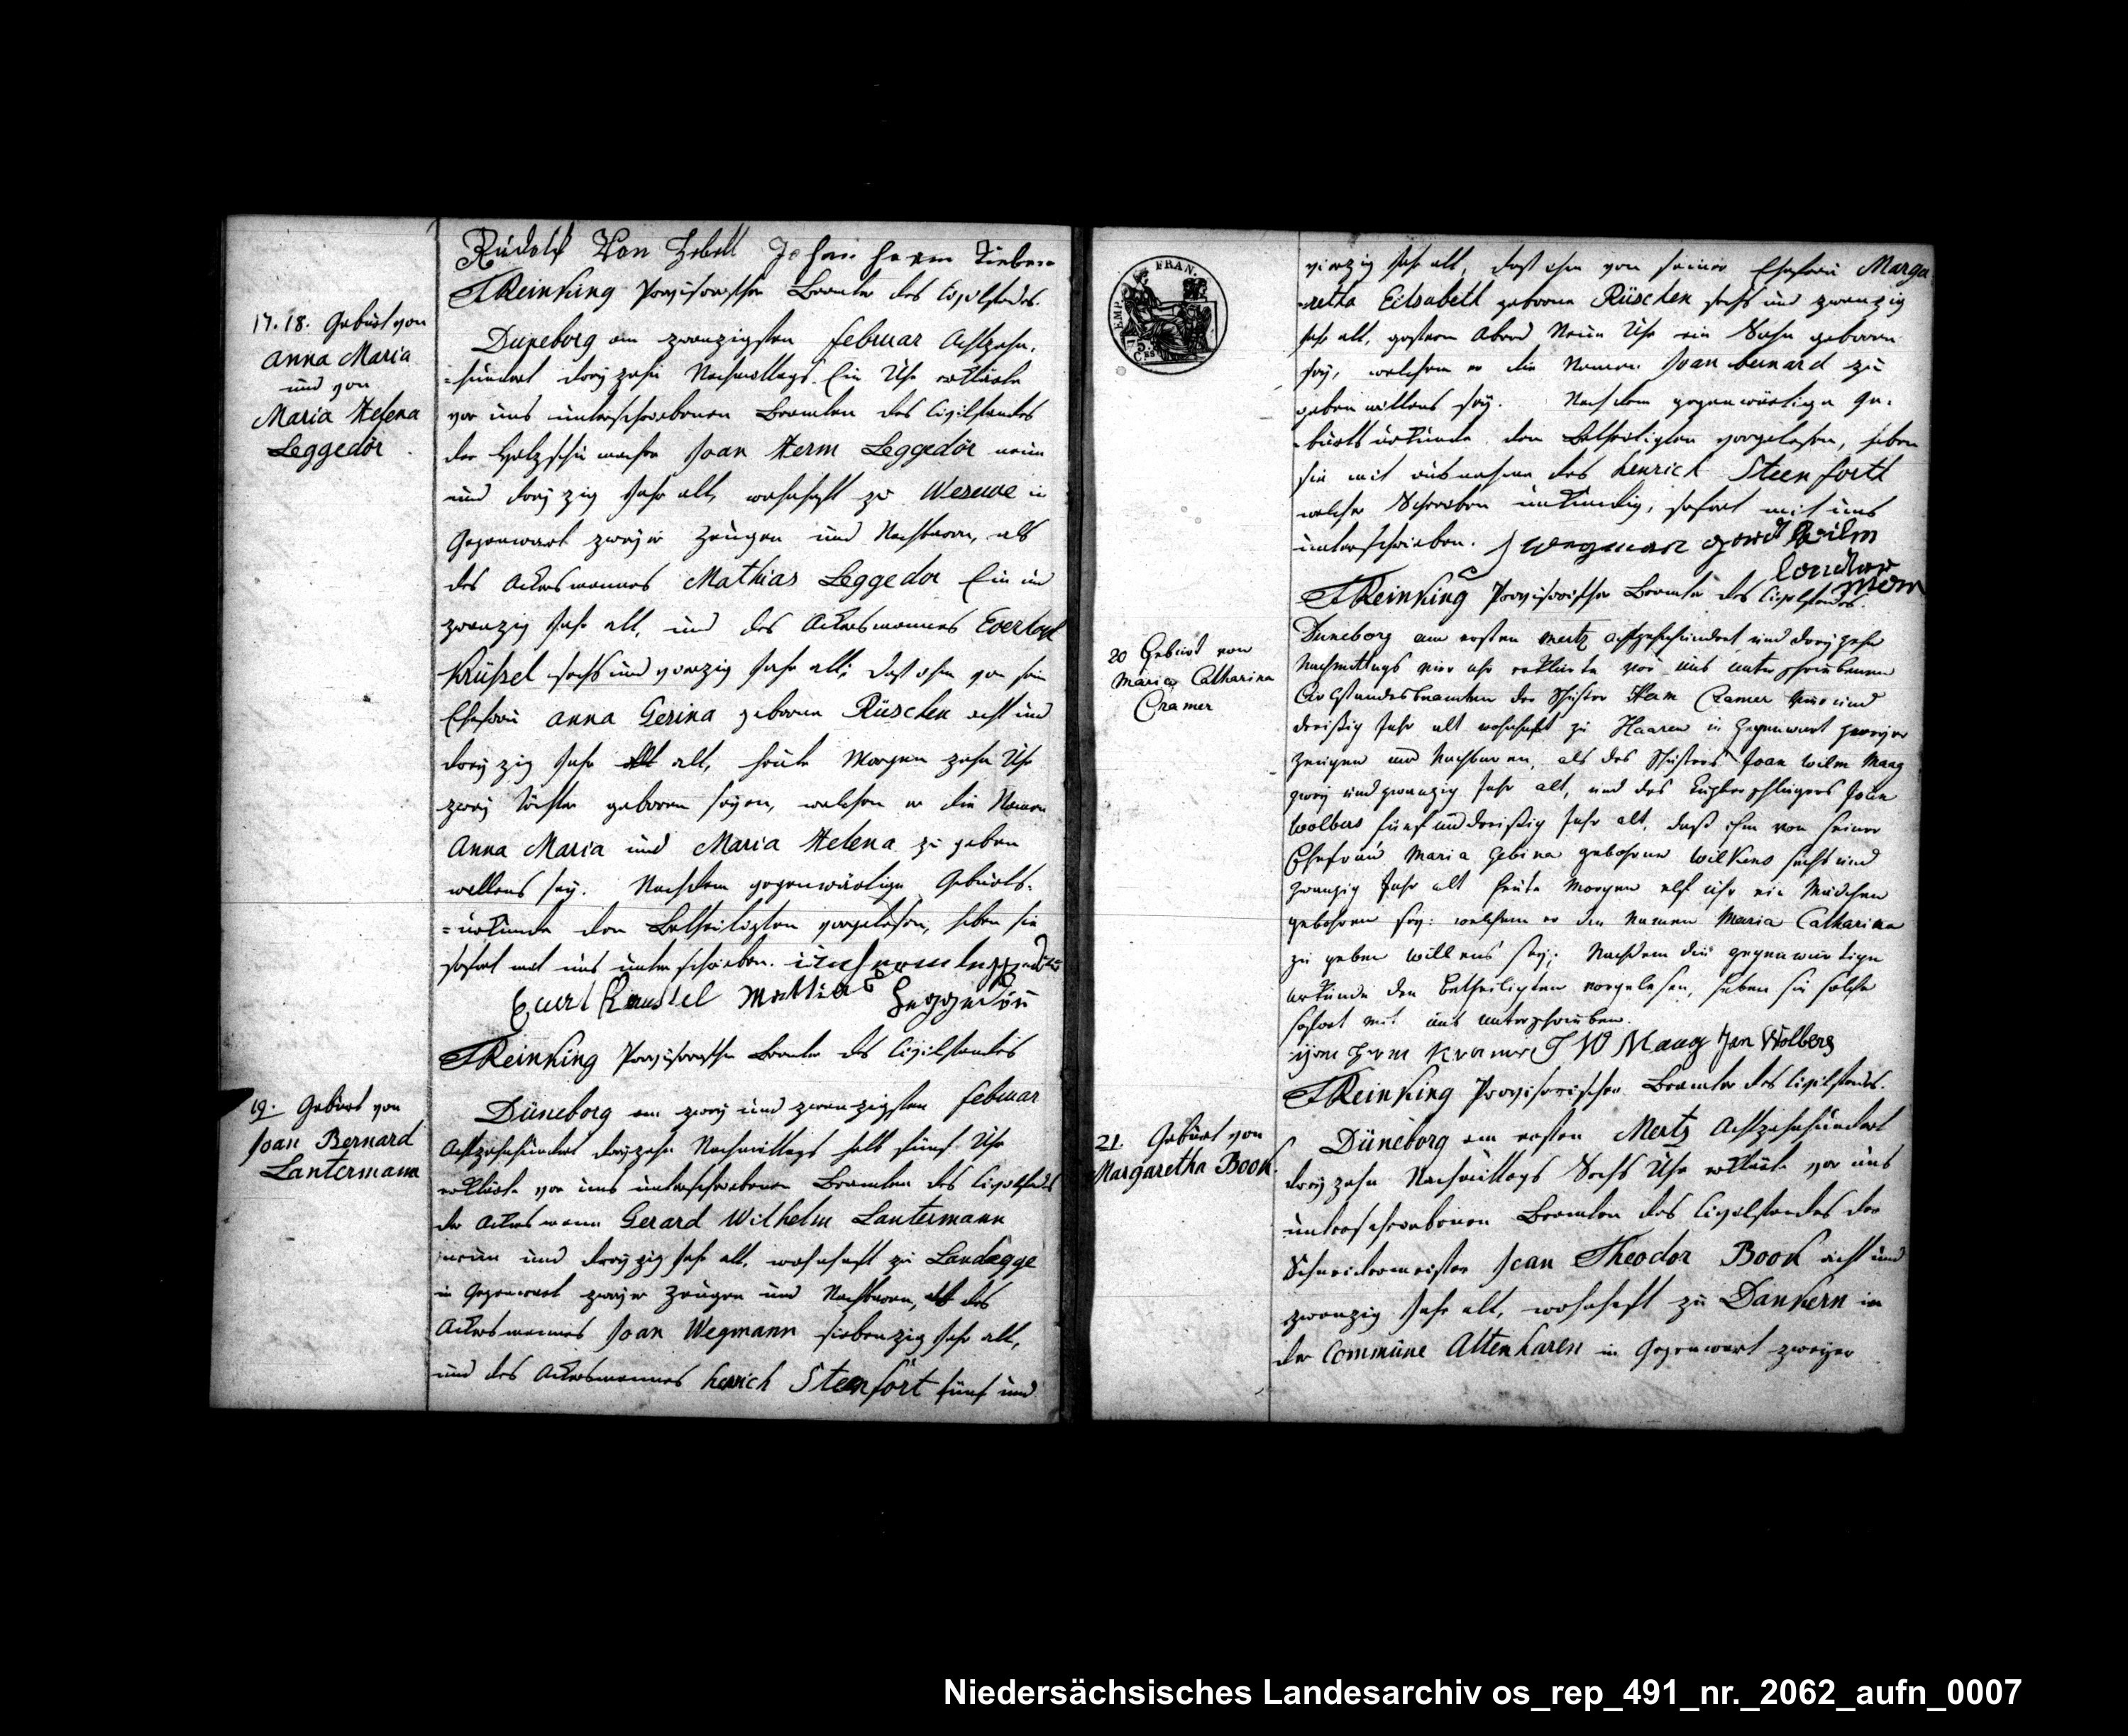 Rudolf Von Zebell Johan herm
TReinking Provisorischer Beamter des Civilstandes.
17. 18. Geburt von
Anna Maria
und von
Maria Helena
Leggedör
Düneborg am zwanzigsten Februar Achtzehn-
=hundert dreyzehn Nachmittags Ein Uhr erklärte
vor uns unterschriebenen Beamten des Civilstandes
der Holzschumacher Joan Herm Leggedör neun
und dreyzig Jahr alt, wohnhaft zu Wesuwe in
Gegenwart zweyer Zeugen und Nachbaren, als
des Ackersmannes Mathias Leggedor Ein un
zwanzig Jahr alt, und des Ackersmannes
Krüssel sechs und vierzig Jahr alt; daß ihm von sein
Ehefrau Anna Gesina geborne Rüschen acht und
dreyzig Jahr alt, heute Morgen zehn Uhr
zwey Töchter geboren seyen, welchen er die Namen
Anna Maria und Maria Helena zu geben
willens sey. Nachdem gegenwärtige Geburts-
=urkunde den Betheiligten vorgelesen, haben sie
sofort mit uns unterschrieben.
Evert Mattias Leggedör
TReinking Provisorischer Beamter des Civilstandes
19. Geburt von
Joan Bernard
Lantermann
Düneborg am zwey und zwanzigsten Februar
Achtzehnhundert dreyzehn Nachmittags halb fünf Uhr
erklärte vor uns unterschriebenen Beamten des Civilstandes
der Ackersmann Gerard Wilhelm Lantermann
neun und dreyzig Jahr alt, wohnhaft zu Landegge
in Gegenwart zweyer Zeugen und Nachbaren, als des
Ackersmannes Joan Wegmann siebenzig Jahr alt,
und des Ackersmannes Henrich Steenfört fünf und
EMP. FRAN.
75
CES
vierzig Jahr alt, daß ihm von seiner Ehefrau Marga-
-retha Elisabeth geborne Rüschen sechs und zwanzig
Jahr alt, gestern Abend Neun Uhr ein Sohn geboren
sey, welchem er die Namen Joan bernard zu
geben willens sey. Nachdem gegenwärtige Ge-
-burtsurkunde den Betheiligten vorgelesen, haben
sie mit ausnahme des Henrich Steenforth
welcher Schreiben unkundig, sofort mit uns
unterschrieben. J Wegman gerd wilm
mom
TReinking Provisorischer Beamter des Civilstandes.
20 Geburt von
Maria Catharina
Cramer
Duneborg am ersten Mertz achtzehnhundert und dreyzehn
Nachmittags vier uhr erklärte vor uns unterschriebenen
Civilstandesbeamten der Schuster Herm Cramer und
dreißig Jahr alt wohnhaft zu Haaren in Gegenwart zweyer
Zeugen und Nachbaren, als des Schusters Joan Wilm Maag
zwey und zwanzig Jahr alt, und des Joan
Wolbers fünf und dreißig Jahr alt, daß ihm von seiner
Ehefrau Maria Gebina gebohrne Wilkens sechs und
zwanzig Jahr alt heute Morgen elf uhr ein Mädchen
gebohren sey: welchem er den Namen Maria Catharina
zu geben willens sey; Nachdem die gegenwärtige
Urkunde den Betheiligten vorgelesen, haben sie solche
sofort mit uns unterschrieben.
herm Kramer J W Maag Jan Wolbers
TReinking Provisorischer Beamter des Civilstandes.
21 Geburt von
Margaretha Book
Düneborg am ersten Mertz Achtzehnhundert
dreyzehn Nachmittags Sechs Uhr erklärte vor uns
unterschriebenen Beamten des Civilstandes der
Schneidermeister Joan Theodor Book acht und
zwanzig Jahr alt, wohnhaft zu Dankern in
der Commüne Altenharen in Gegenwart zweyer
Niedersächsisches Landesarchiv os_rep_491_nr._2062_aufn_0007